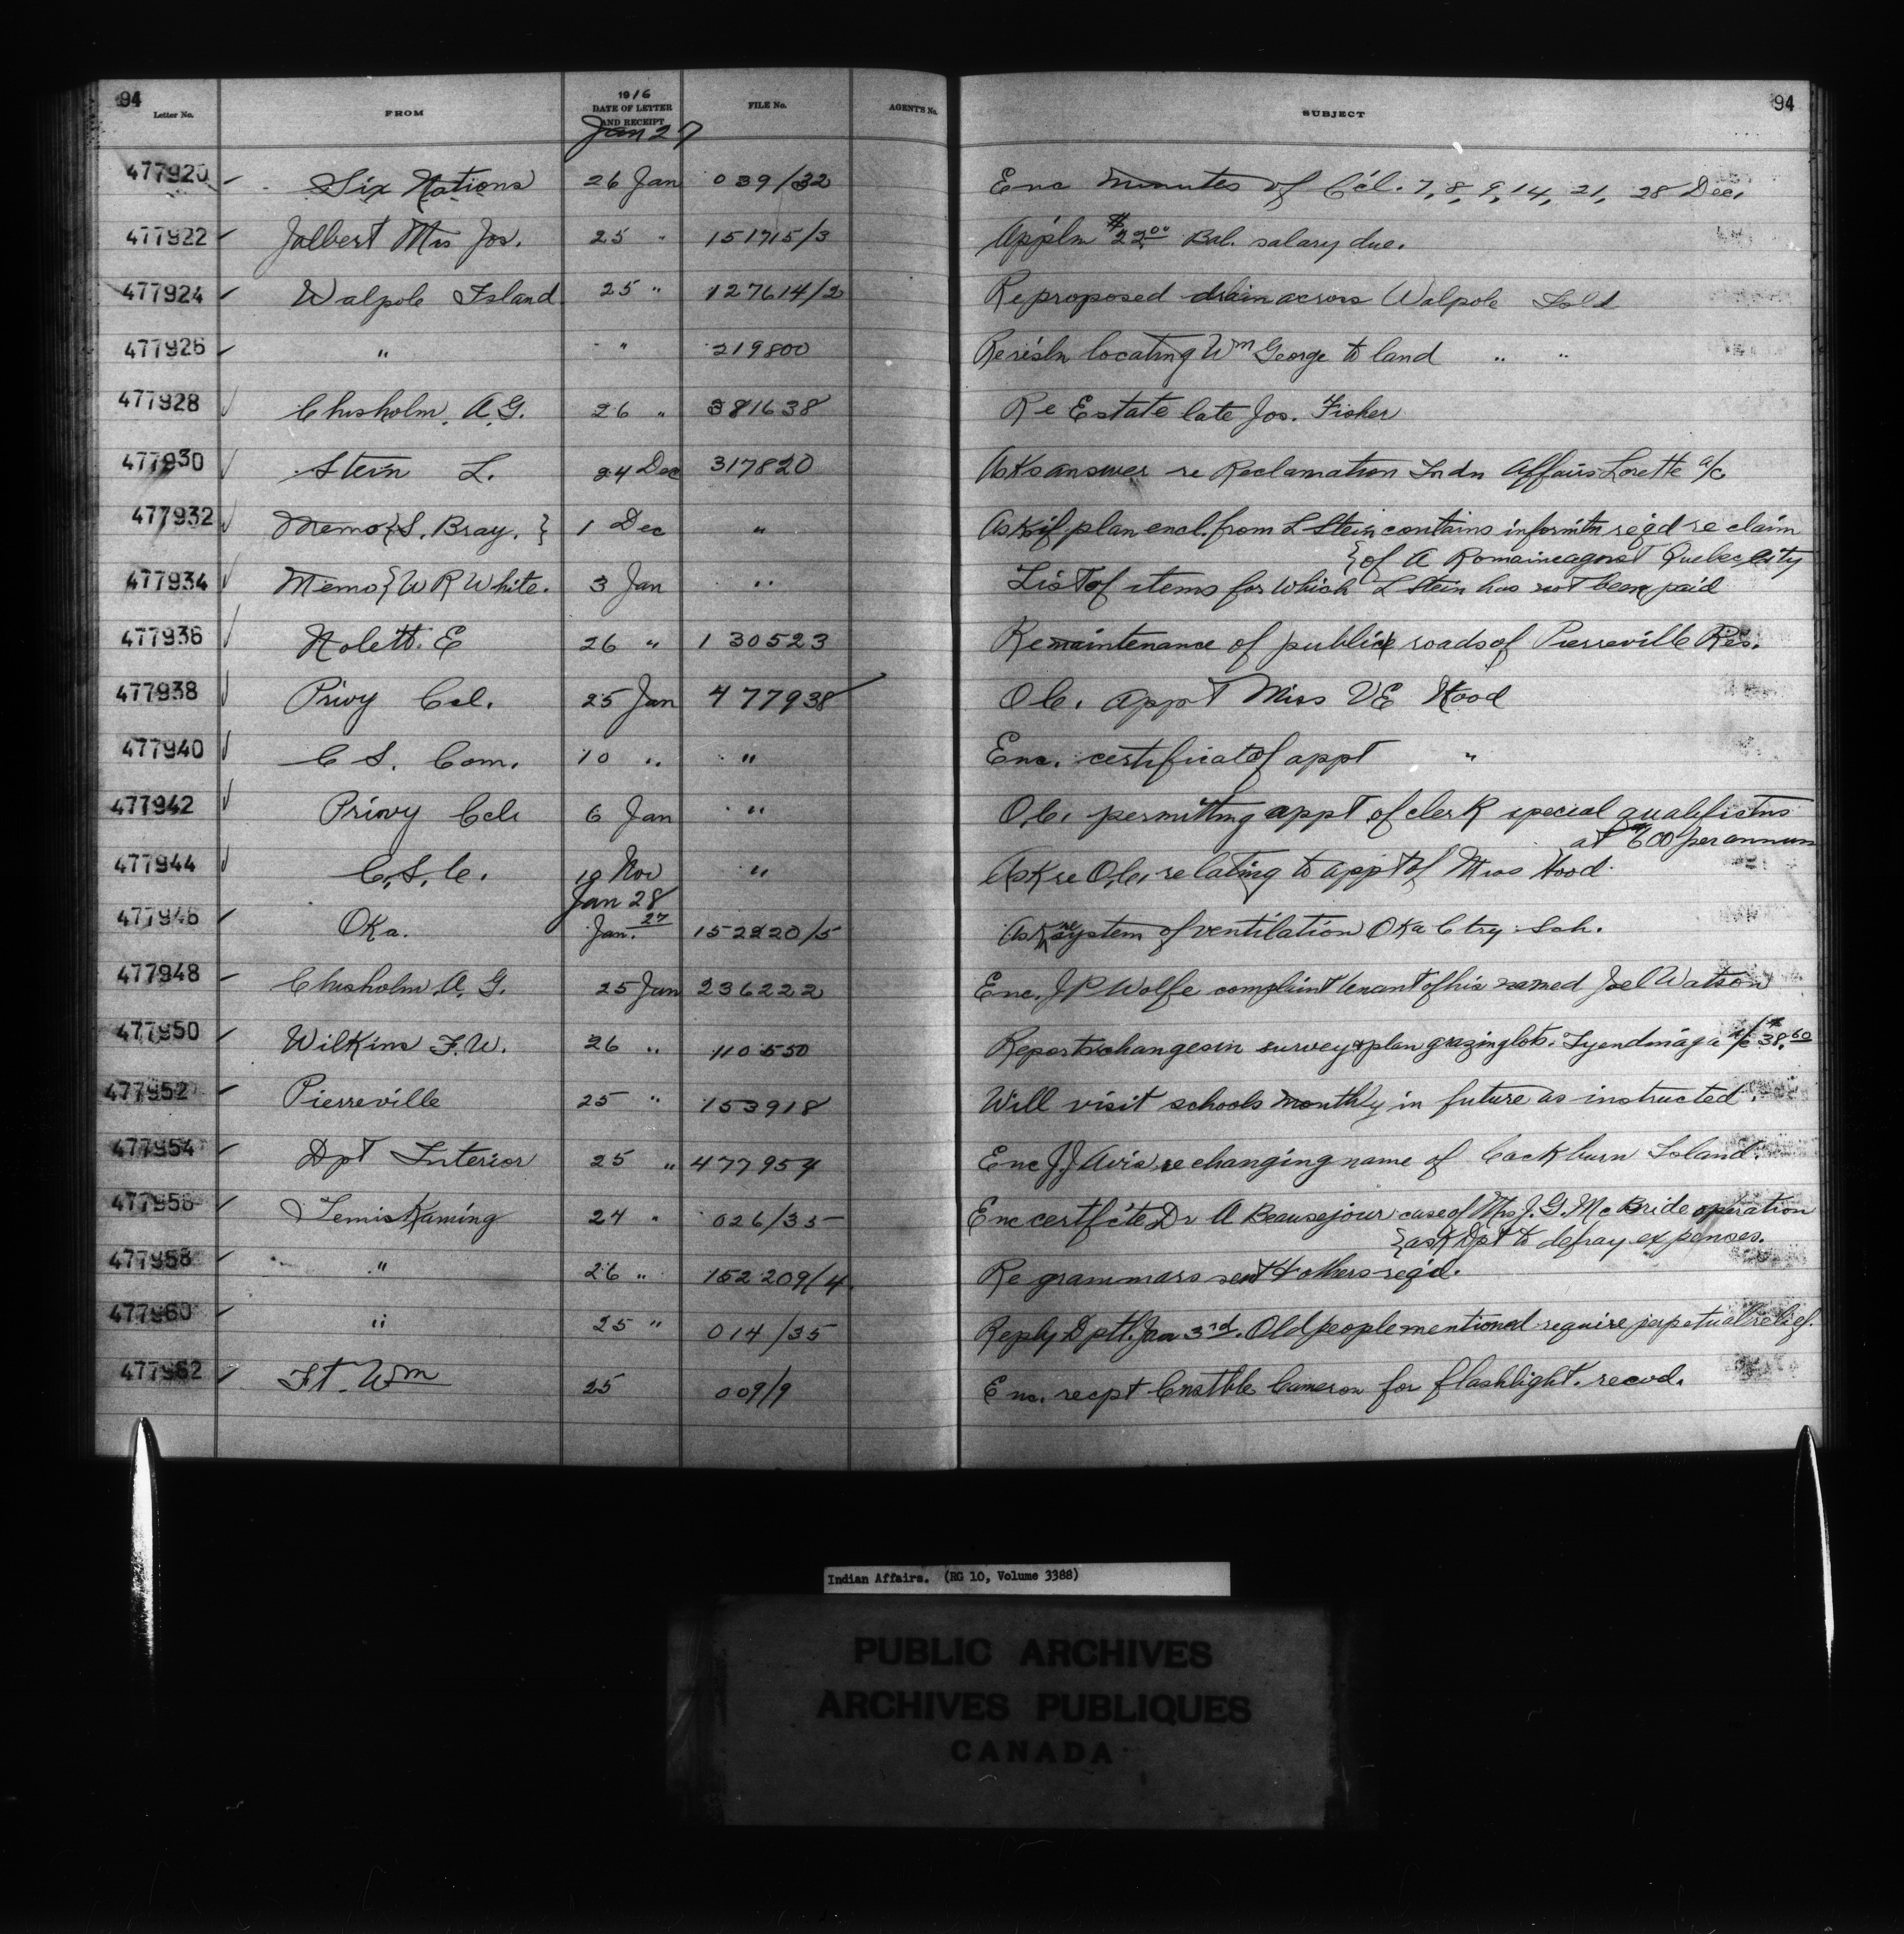 94 94
Letter No. FROM 1916 DATE OF LETTER AND RECEIPT FILE No. AGENT'S No. SUBJECT
Jan 27
477920 Six Nations 26 Jan 039/32 Enc minutes of C'cl. 7, 8, 9, 14, 21, 28 Dec.
477922 Jalbert Mrs Jos. 25 " 151715/3 Appln $22.00 Bal. salary due.
477924 Walpole Island 25 " 127614/2 Re proposed drain across Walpole Isld
477926 " " 219800 Re res'ln locating Wm George to land " "
477928 Chisholm, A.G. 26 " 381638 Re Estate late Jos. Fisher
477930 Stein L. 24 Dec 317820 Asks answer re Reclamation Indn Affairs Lorette a/c
477932 Memo {S. Bray. } 1 Dec " Ask if plan encl. from L Stein contains informtn req'd re claim
{of A Romaine agnst Quebec city
477934 Memo {W R White. 3 Jan " List of items for which L Stein has not been paid
477936 Nolett. E 26 " 130523 Re maintenance of public roads of Pierreville Res.
477938 Privy Ccl. 25 Jan 477938 O.C. appt Miss VE Hood
477940 C S. Com. 10 " " Enc. certificate of appt "
477942 Privy Ccl. 6 Jan " O.C. permitting appt of clerk special qualifictns
at $600 per annum
477944 C.S.C. 19 Nov " Ask re O.C. relating to appt of Miss Hood
Jan 28
477946 Oka. Jan. 27 152220/5 Ask re system of ventilation Oka Ctry Sch.
477948 Chisholm A. G. 25 Jan 236222 Enc. J P Wolfe complaint tenant of his named Joel Watson
477950 Wilkins F.W. 26 " 110550 Reports changes in survey & plan grazing lots. Tyendinaga a/c $38.60
477952 Pierreville 25 " 153918 Will visit schools monthly in future as instructed.
477954 Dpt Interior 25 " 477954 Enc J.J Avis, re changing name of Cockburn Island.
477956 Temiskaming 24 " 026/35 Enc certfcte Dr A Beausejour case of Mrs J. G. Mc Bride operation
{ask Dpt to defray expenses.
477958 " 26 " 152209/4. Re grammars sent & others req'd.
477960 " 25 " 014/35 Reply Dptl. Jan 3rd. Old people mentioned require perpetual relief.
477962 Ft. Wm 25 009/9 Enc. recpt Cnstble Cameron for flashlight. recvd.
Indian Affairs. (RG 10, Volume 3388)
PUBLIC ARCHIVES
ARCHIVES PUBLIQUES
CANADA